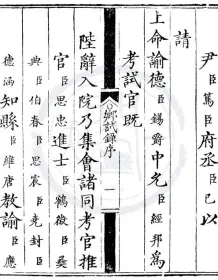 尹臣篤府丞臣已以
請
上命諭德臣錫爵中允臣經邦爲
考試官既
鄉試錄序 一
陛辭入院乃集會諸同考官推
官臣思忠進士臣鶴徵臣
典臣伯春臣思宸臣堯封臣
德涵知縣臣維唐教諭臣應